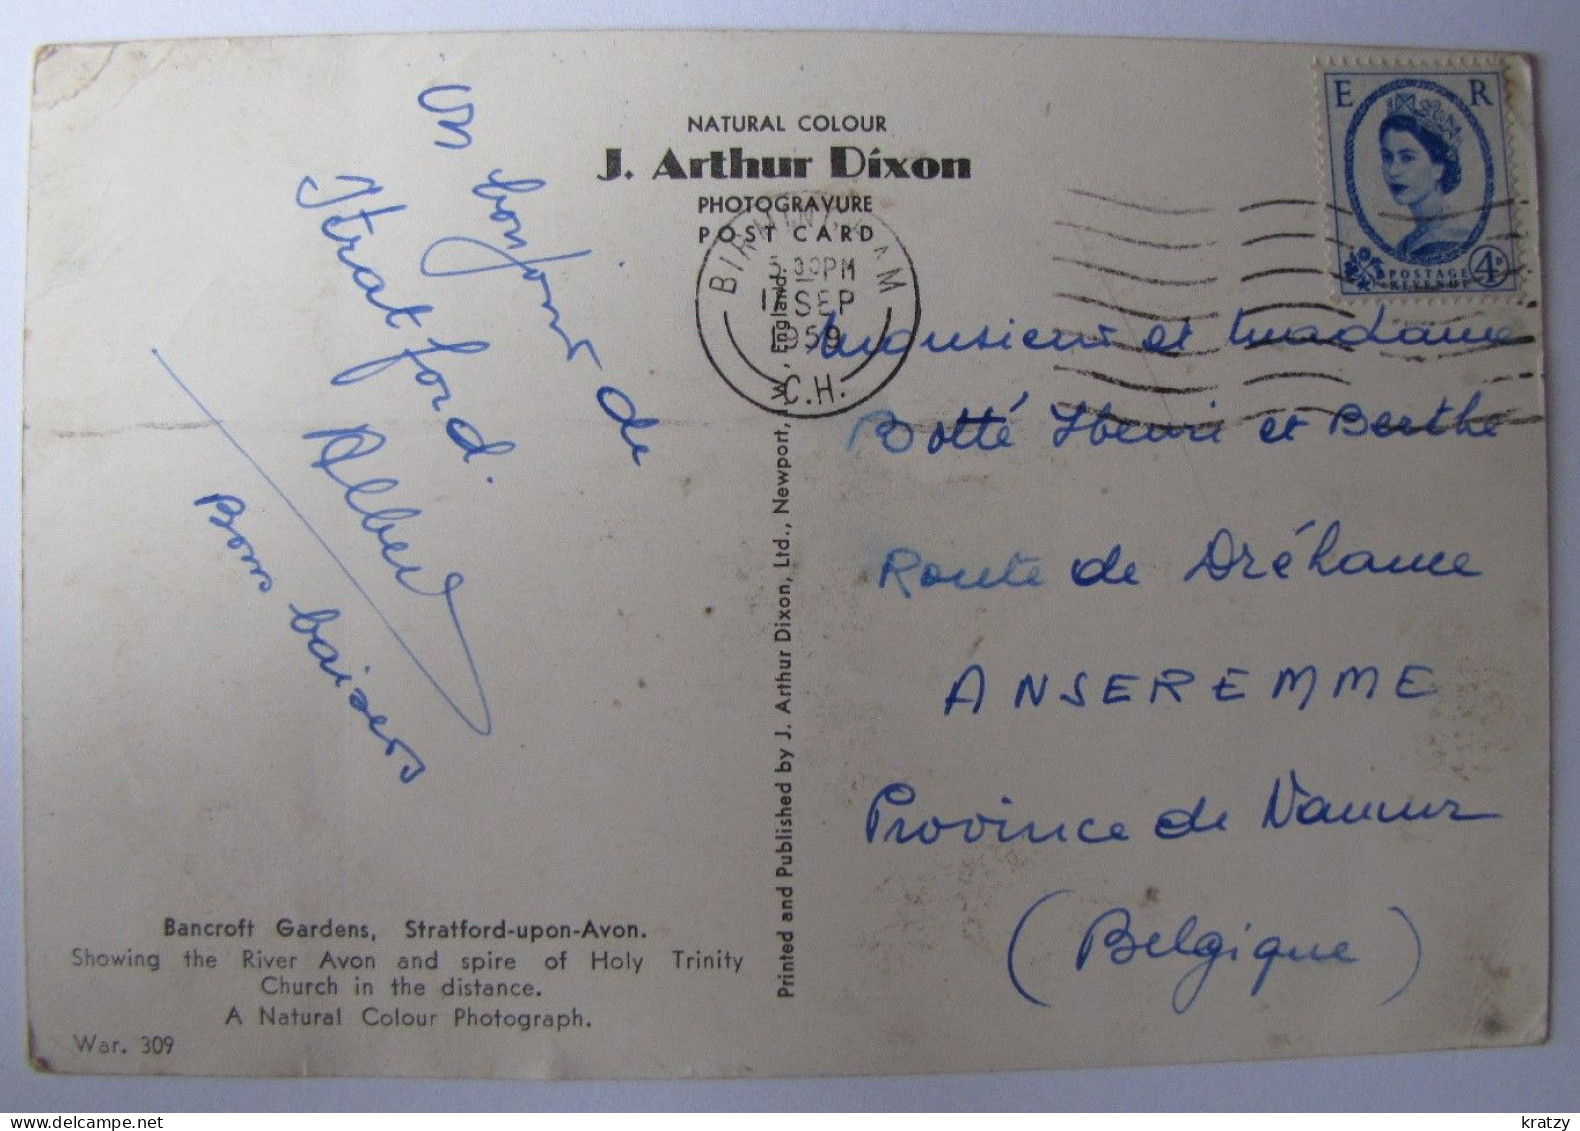 NATURAL COLOUR
J. Arthur Dixon
PHOTOGRAVURE
POST CARD
E R
POSTAGE
REVENUE
4D
BIRMINGHAM
5.30PM
SEP
1959
C.H.
un bonjour de
Stratford.
Albert
Bons baisers
Monsieur et Madame
Botté Henri et Berthe
Route de Dréhance
ANSEREMME
Province de Namur
(Belgique)
Printed and Published by J. Arthur Dixon, Ltd., Newport, I.W., England.
Bancroft Gardens, Stratford-upon-Avon.
Showing the River Avon and spire of Holy Trinity
Church in the distance.
A Natural Colour Photograph.
War. 309
kratzy